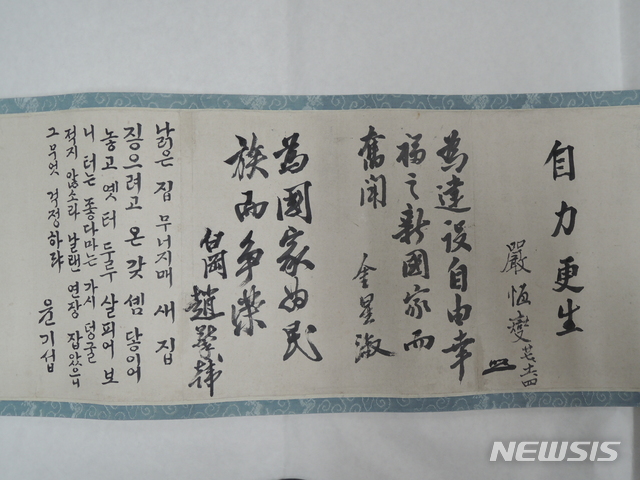 自力更生
嚴恆燮
為建设自由幸
福之新國家而
奮闘
金星淑
為國家為民
族而争榮
白岡 趙擎韓
낡은 집 무너지매 새 집
온 갖 셈 닿이어
놓고 옛 터 두루 살피어 보
니 터는 좋다마는 가시 덩굴
적지 않소라 날랜 연장 잡았으니
그 무엇 걱정하랴 윤기섭
NEWSIS